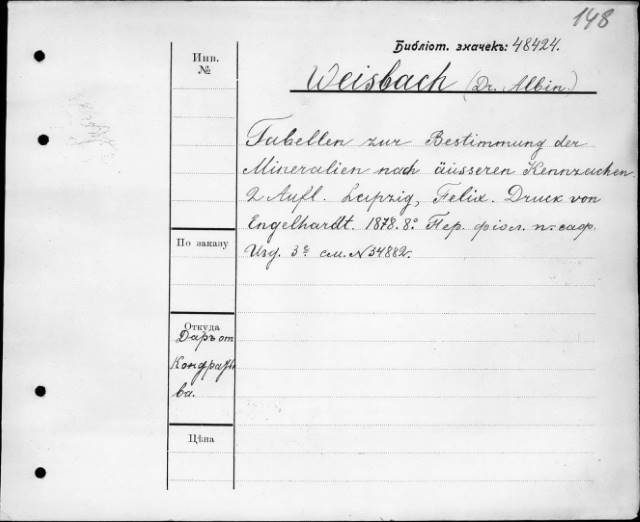 148
Библіот. значекъ: 48424.
Инв.
№
Weisbach (Dr. Albin.)
Tabellen zur Bestimmung der
Mineralien nach äusseren Kennzeichen.
2 Aufl. Leipzig, Felix. Druck von
Engelhardt. 1878. 8º. Пер. фіол. п. саф.
Изд. 3е см. N 34882.
По заказу
Откуда
Даръ от
Кондратье
ва.
Цѣна